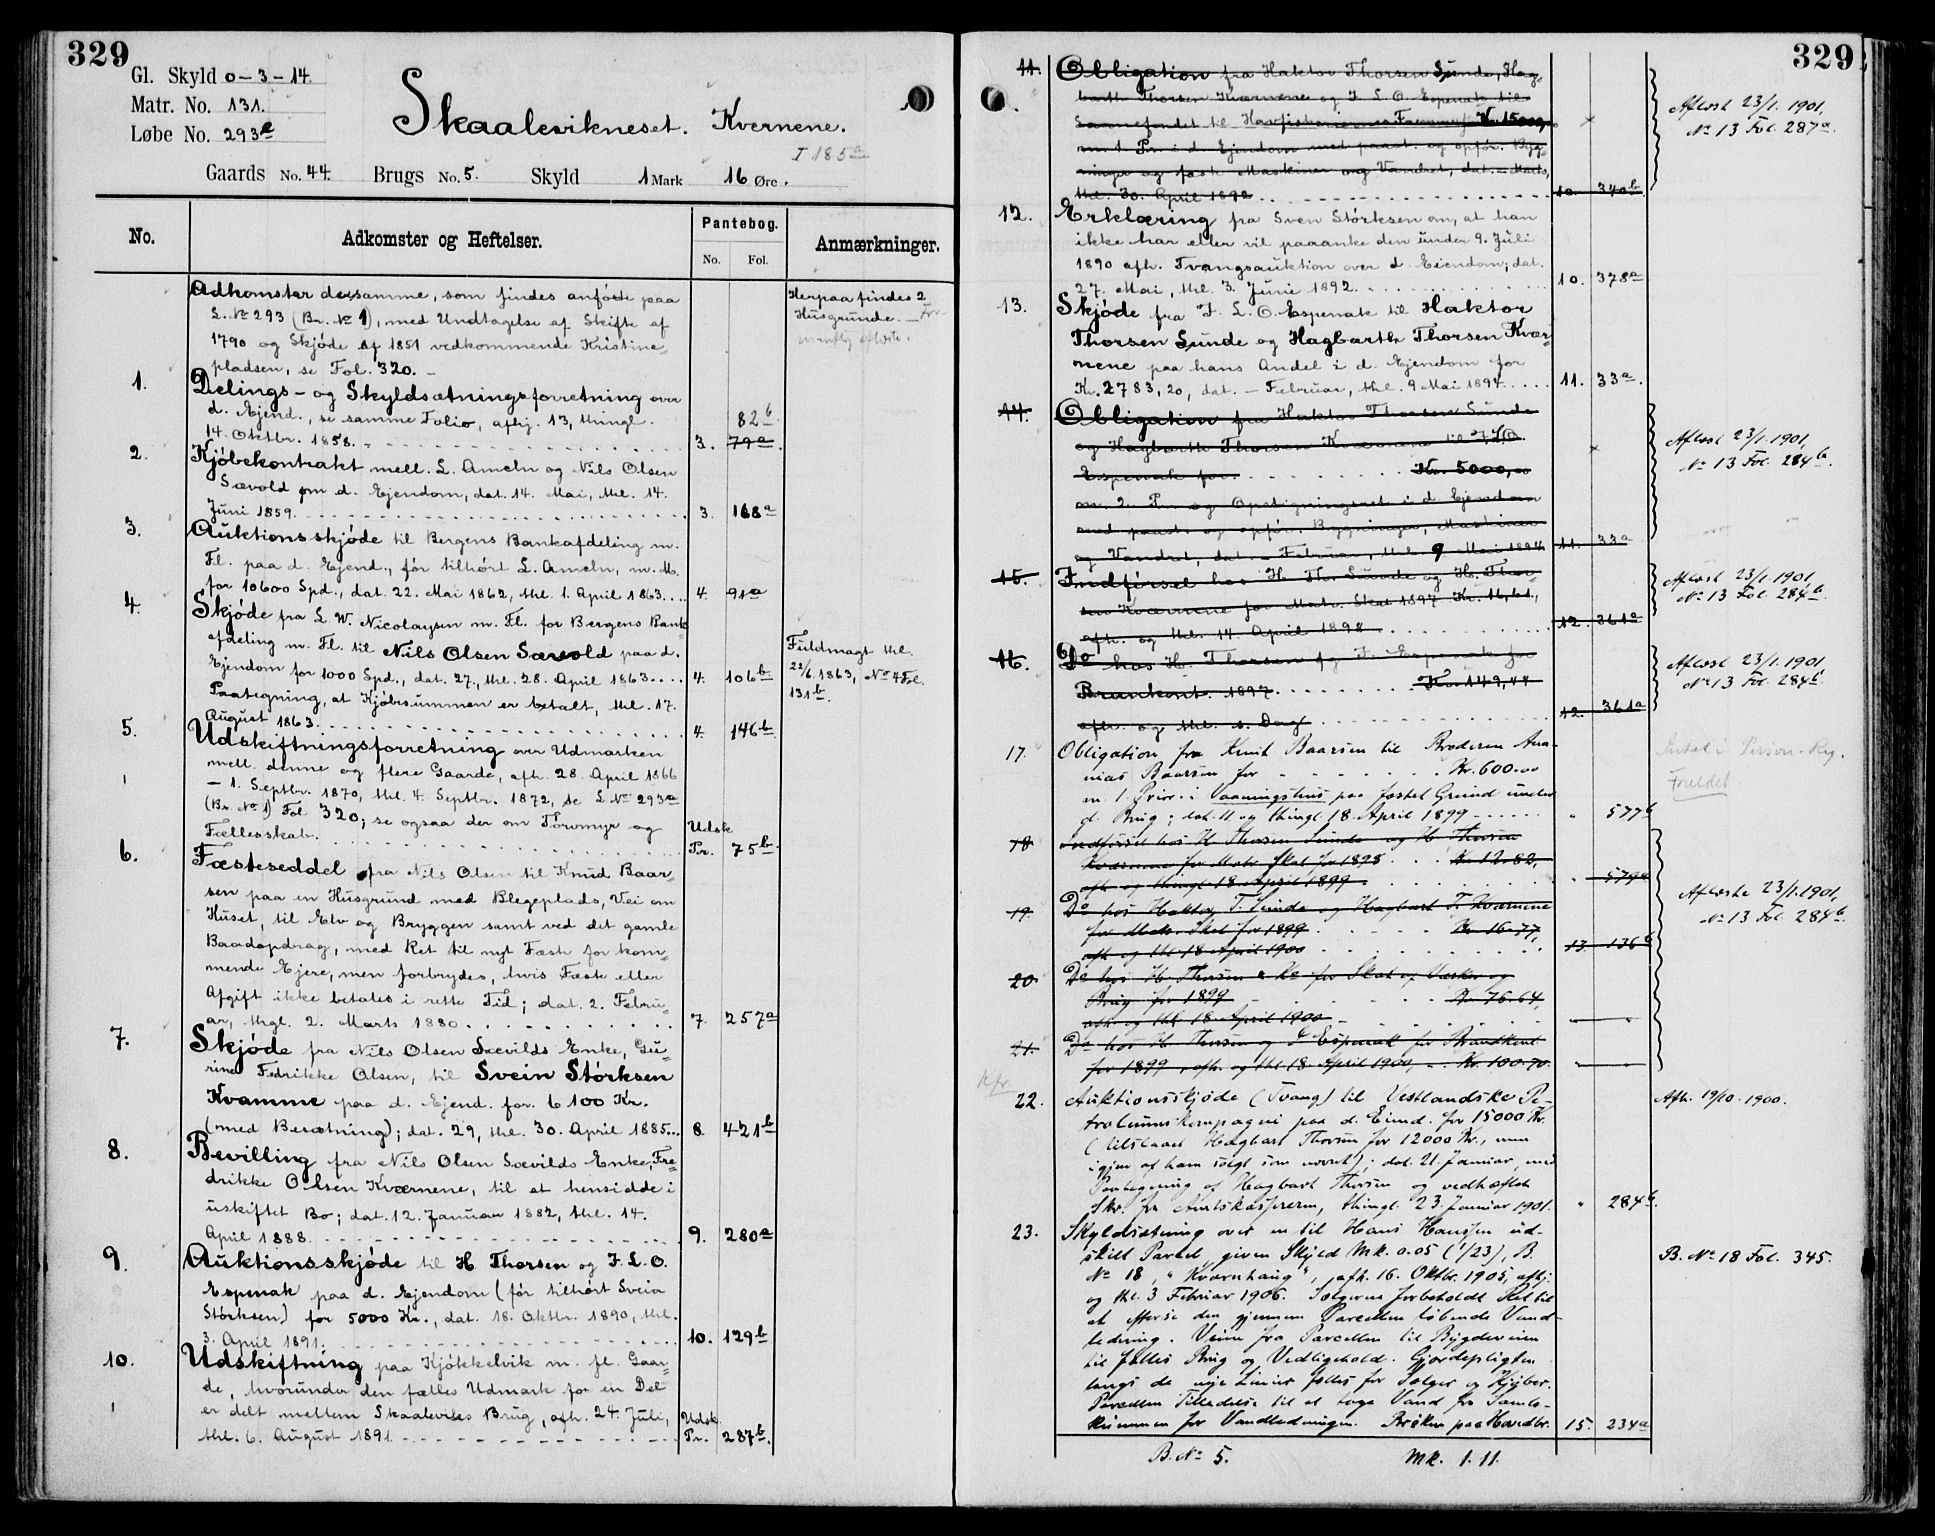 329
Gl. Skyld 0-3-14.
Matr. No. 131.
Løbe No. 293a
Skaalevikneset. Kvernene.
I 185a
Gaards No. 44. Brugs No. 5. Skyld 1 Mark 16 Øre.
No. Adkomster og Heftelser. Pantebog. Anmærkninger.
No. Fol.
Adkomster desamme, som findes anførte paa
L. No 293 (Br. No 1), med Undtagelse af Skifte af
1790 og Skjøde af 1851 vedkommende Kristine-
pladsen, se Fol. 320. –
Herpaa findes 2
Husgrunde. –
1. Delings- og Skyldsætningsforretning over
d. Ejend., se samme Folio, afhj. 13, thingl. 82b
14. Oktbr. 1858. 3. 79a
2. Kjøbekontrakt mell. L. Ameln og Nils Olsen
Sævold om d. Ejendom, dat. 14. Mai, thl. 14.
Juni 1859. 3. 168a
3. Auktionsskjøde til Bergens Bankafdeling m.
Fl. paa d. Ejend., før tilhørt L. Ameln, m. M.
for 10600 Spd., dat. 22. Mai 1862, thl. 1. April 1863.... 4. 91a
4. Skjøde fra L. W. Nicolaysen m. Fl. for Bergens Bank-
afdeling m. Fl. til Nils Olsen Sævold paa d.
Ejendom for 1000 Spd., dat. 27., thl. 28. April 1863.... 4. 106b
Paategning, at Kjøbesummen er betalt, thl. 17.
August 1863. 4. 146b
Fuldmagt thl.
22/6 1863, No 4 Fol.
131b.
5. Udskiftningsforretning over Udmarken
mell. denne og flere Gaarde, afh. 28. April 1866
– 1. Septbr. 1870, thl. 4. Septbr. 1872, se L. No 293a
(Br. No 1) Fol. 320; se ogsaa der om Torvmyr og
Fællesskab. Udsk. Pr. 75b
6. Fæsteseddel fra Nils Olsen til Knud Baar-
sen paa en Husgrund med Blegeplads, Vei om
Huset, til Elv og Bryggen samt ved det gamle
Baadopdrag, med Ret til nyt Fæste for kom-
mende Ejere, men forbrydes, hvis Fæste eller
Afgift ikke betales i rette Tid; dat. 2. Febru-
ar, thgl. 2. Marts 1880. 7. 257a
7. Skjøde fra Nils Olsen Sævilds Enke, Gu-
rine Fedrikke Olsen, til Svein Størksen
Kvamme paa d. Ejend. for 6100 Kr.
(med Besætning); dat. 29, thl. 30. April 1885... 8. 421b
8. Bevilling fra Nils Olsen Sævilds Enke, Fre-
drikke Olsen Kværnene, til at hensidde i
uskiftet Bo; dat. 12. Januar 1882, thl. 14.
April 1888. 9. 280a
9. Auktionsskjøde til H. Thorsen og F. L. O.
Espenak paa d. Ejendom (før tilhørt Svein
Størksen) for 5000 Kr., dat. 18. Oktbr. 1890, thl.
3. April 1891. 10. 129b
10. Udskiftning paa Kjøkkelvik m. fl. Gaar-
de, hvorunder den fælles Udmark for en Del
er delt mellem Skaaleviks Brug, afh. 24. Juli,
thl. 6. August 1891. Udsk. Pr. 287b.
329
11. Obligation fra Haktor Thorsen Sunde, Hag-
barth Thorsen Kværnene og F. L. O. Espenak til
Kr. 15000,
m. 1 Pr. i d. Ejendom med paast. og opfør. Byg-
ninger og fast Maskineri og Vandret, dat. – Marts,
thl. 30. April 1892. 10. 340b
Aflæst 23/1. 1901,
No 13 Fol. 287a.
12. Erklæring fra Sven Størksen om, at han
ikke har eller vil paaanke den under 9. Juli
1890 afh. Tvangsauktion over d. Eiendom; dat.
27. Mai, thl. 3. Juni 1892. 10. 378a
13. Skjøde fra F. L. O. Espenak til Haktor
Thorsen Sunde og Hagbarth Thorsen Kvær-
nene paa hans Andel i d. Ejendom for
Kr. 2783,20, dat. – Februar, thl. 9 Mai 1894.... 11. 33a.
14. Obligation fra Haktor Thorsen Sunde
og Hagbarth Thorsen Kværnene til F. L. O.
Espenak for Kr. 5000,00
m. 2. Pr. og Opstigningsret i d. Ejendom
med paast. og opfør. Bygninger, Maskiner
og Vandret, dat. – Februar, thl. 9 Mai 1894 11. 33a
Aflæst 23/1. 1901,
No 13 Fol. 284b.
15. Indførsel hos H. Thr. Sunde og H. Thor-
sen Kværnene for Matr. Skat 1897 Kr. 16,61,
afh. og thl. 14. April 1898. 12. 361a
Aflæst 23/1. 1901,
No 13 Fol. 284b.
16. Do hos H. Thorsen og F. Espenak for
Brankont. 1897 Kr. 149,44
afh. og thl. s. Dag 12. 361a
Aflæst 23/1. 1901,
No 13 Fol. 284b.
17. Obligation fra Knut Baarsen til Broderen Ana-
nias Baarsen for Kr. 600.00
m. 1. Prior. i Vaaningshus paa fæstet Grund under
d. Brug; dat. 11 og thingl. 18. April 1899 " 577b
18. Indførsel hos H. Thorsen Sunde og H. Thorsen
Kværnene for Matr. Skat for 1898 Kr. 12.82,
afh. og thingl. 18. April 1899. " 579a
19. Do hos Haktor T. Sunde og Hagbart T. Kværnene
for Matr. Skat for 1899 Kr. 16.77,
afh. og thl. 18 April 1900 13 136b
20. Do hos H. Thorsen & Ko for Skat af
Brug for 1899 Kr. 76.64,
afh. og thl. 18. April 1900 –
21. Do hos H. Thorsen og F. Espenak for Brandkont.
for 1899, afh. og thl. 18. April 1900, Kr. 100.70.
Aflæste 23/1. 1901,
No 13 Fol. 284b.
22. Auktionsskjøde (Tvang) til Vestlandske Pe-
troleumskompagni paa d. Eiend. for 15000 Kr.
(tilslaaet Hagbart Thorsen for 12000 Kr., men
igjen af ham solgt som nævnt); dat. 21. Januar, med
Paategning af Hagbart Thorsen og vedhæftet
Skr. fra Amtskassereren, thingl. 23. Januar 1901. " 284b.
Afh. 19/10. 1900.
23. Skyldsætning over en til Hans Hanssen ud-
skilt Parcel, given Skyld Mk. 0.05 (1/23), B.
No 18, "Kværnhaug", afh. 16. Oktbr. 1905, afhj.
og thl. 3 Februar 1906. Sælgeren forbeholdt Ret til
at efterse den gjennem Parcellen løbende Vand-
ledning. Veien fra Parcellen til Bygdeveien
til fælles Brug og Vedligehold. Gjerdepligten
langs de nye Linier fælles for Sælger og Kjøber.
Parcellen Tilladelse til at tage Vand fra Samle-
kummen for Vandledningen. 15. 234a
B. No 18 Fol. 345.
B. No 5. Mk. 1.11.